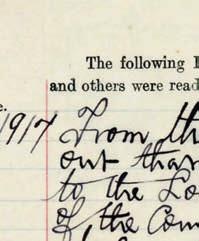 The following
and others were read
e.
1917 From th
out than
to the Lo
of, the Com